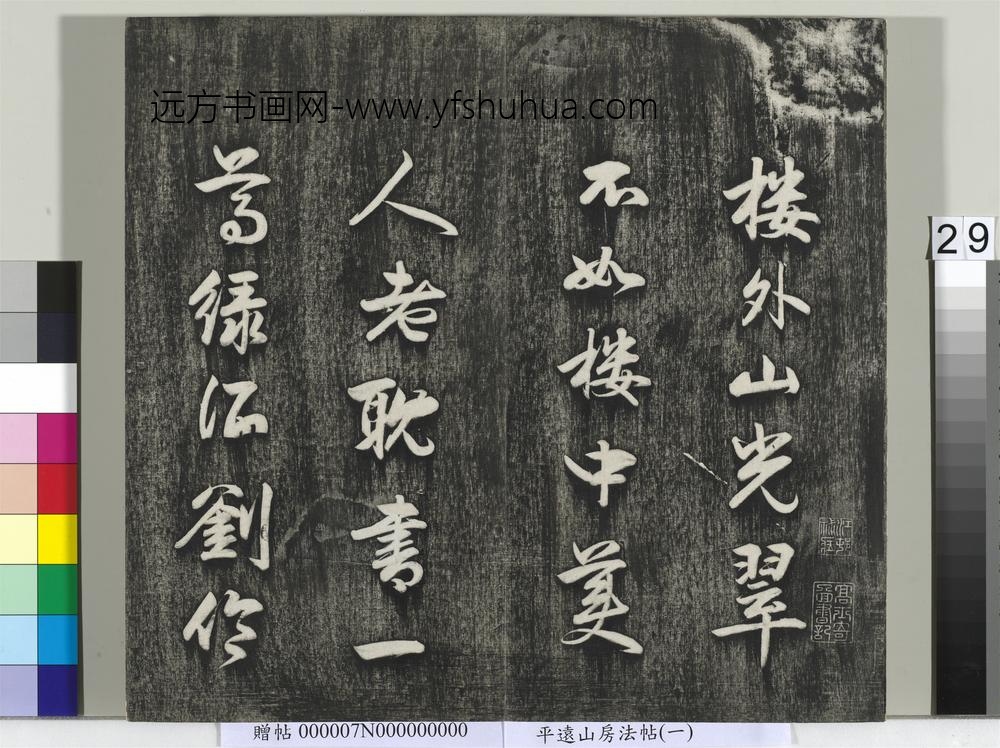 远方书画网-www.yfshuhua.com
楼外山光翠
不如楼中美
人老耽書一
尊緑酒劉伶
江邨秘藏
高士奇圖書記
29
贈帖 000007N000000000
平遠山房法帖(一)